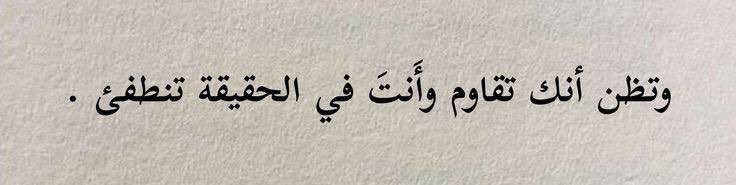 وتظن أنك تقاوم وأَنتَ في الحقيقة تنطفئ .